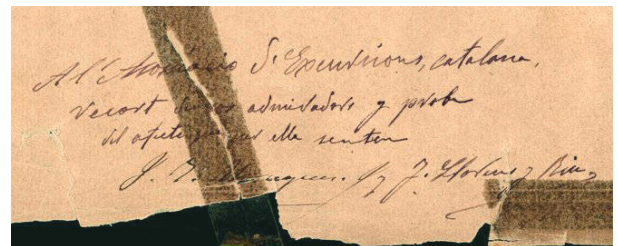 A l'Asociació d'Excursions, catalana,
recort de sos admiradors y proba
del afecte que per ella senten
J. Llorens y Riu